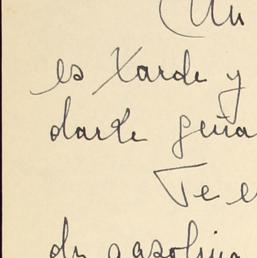 (Un
es tarde y
darte
Te e
de gasolina